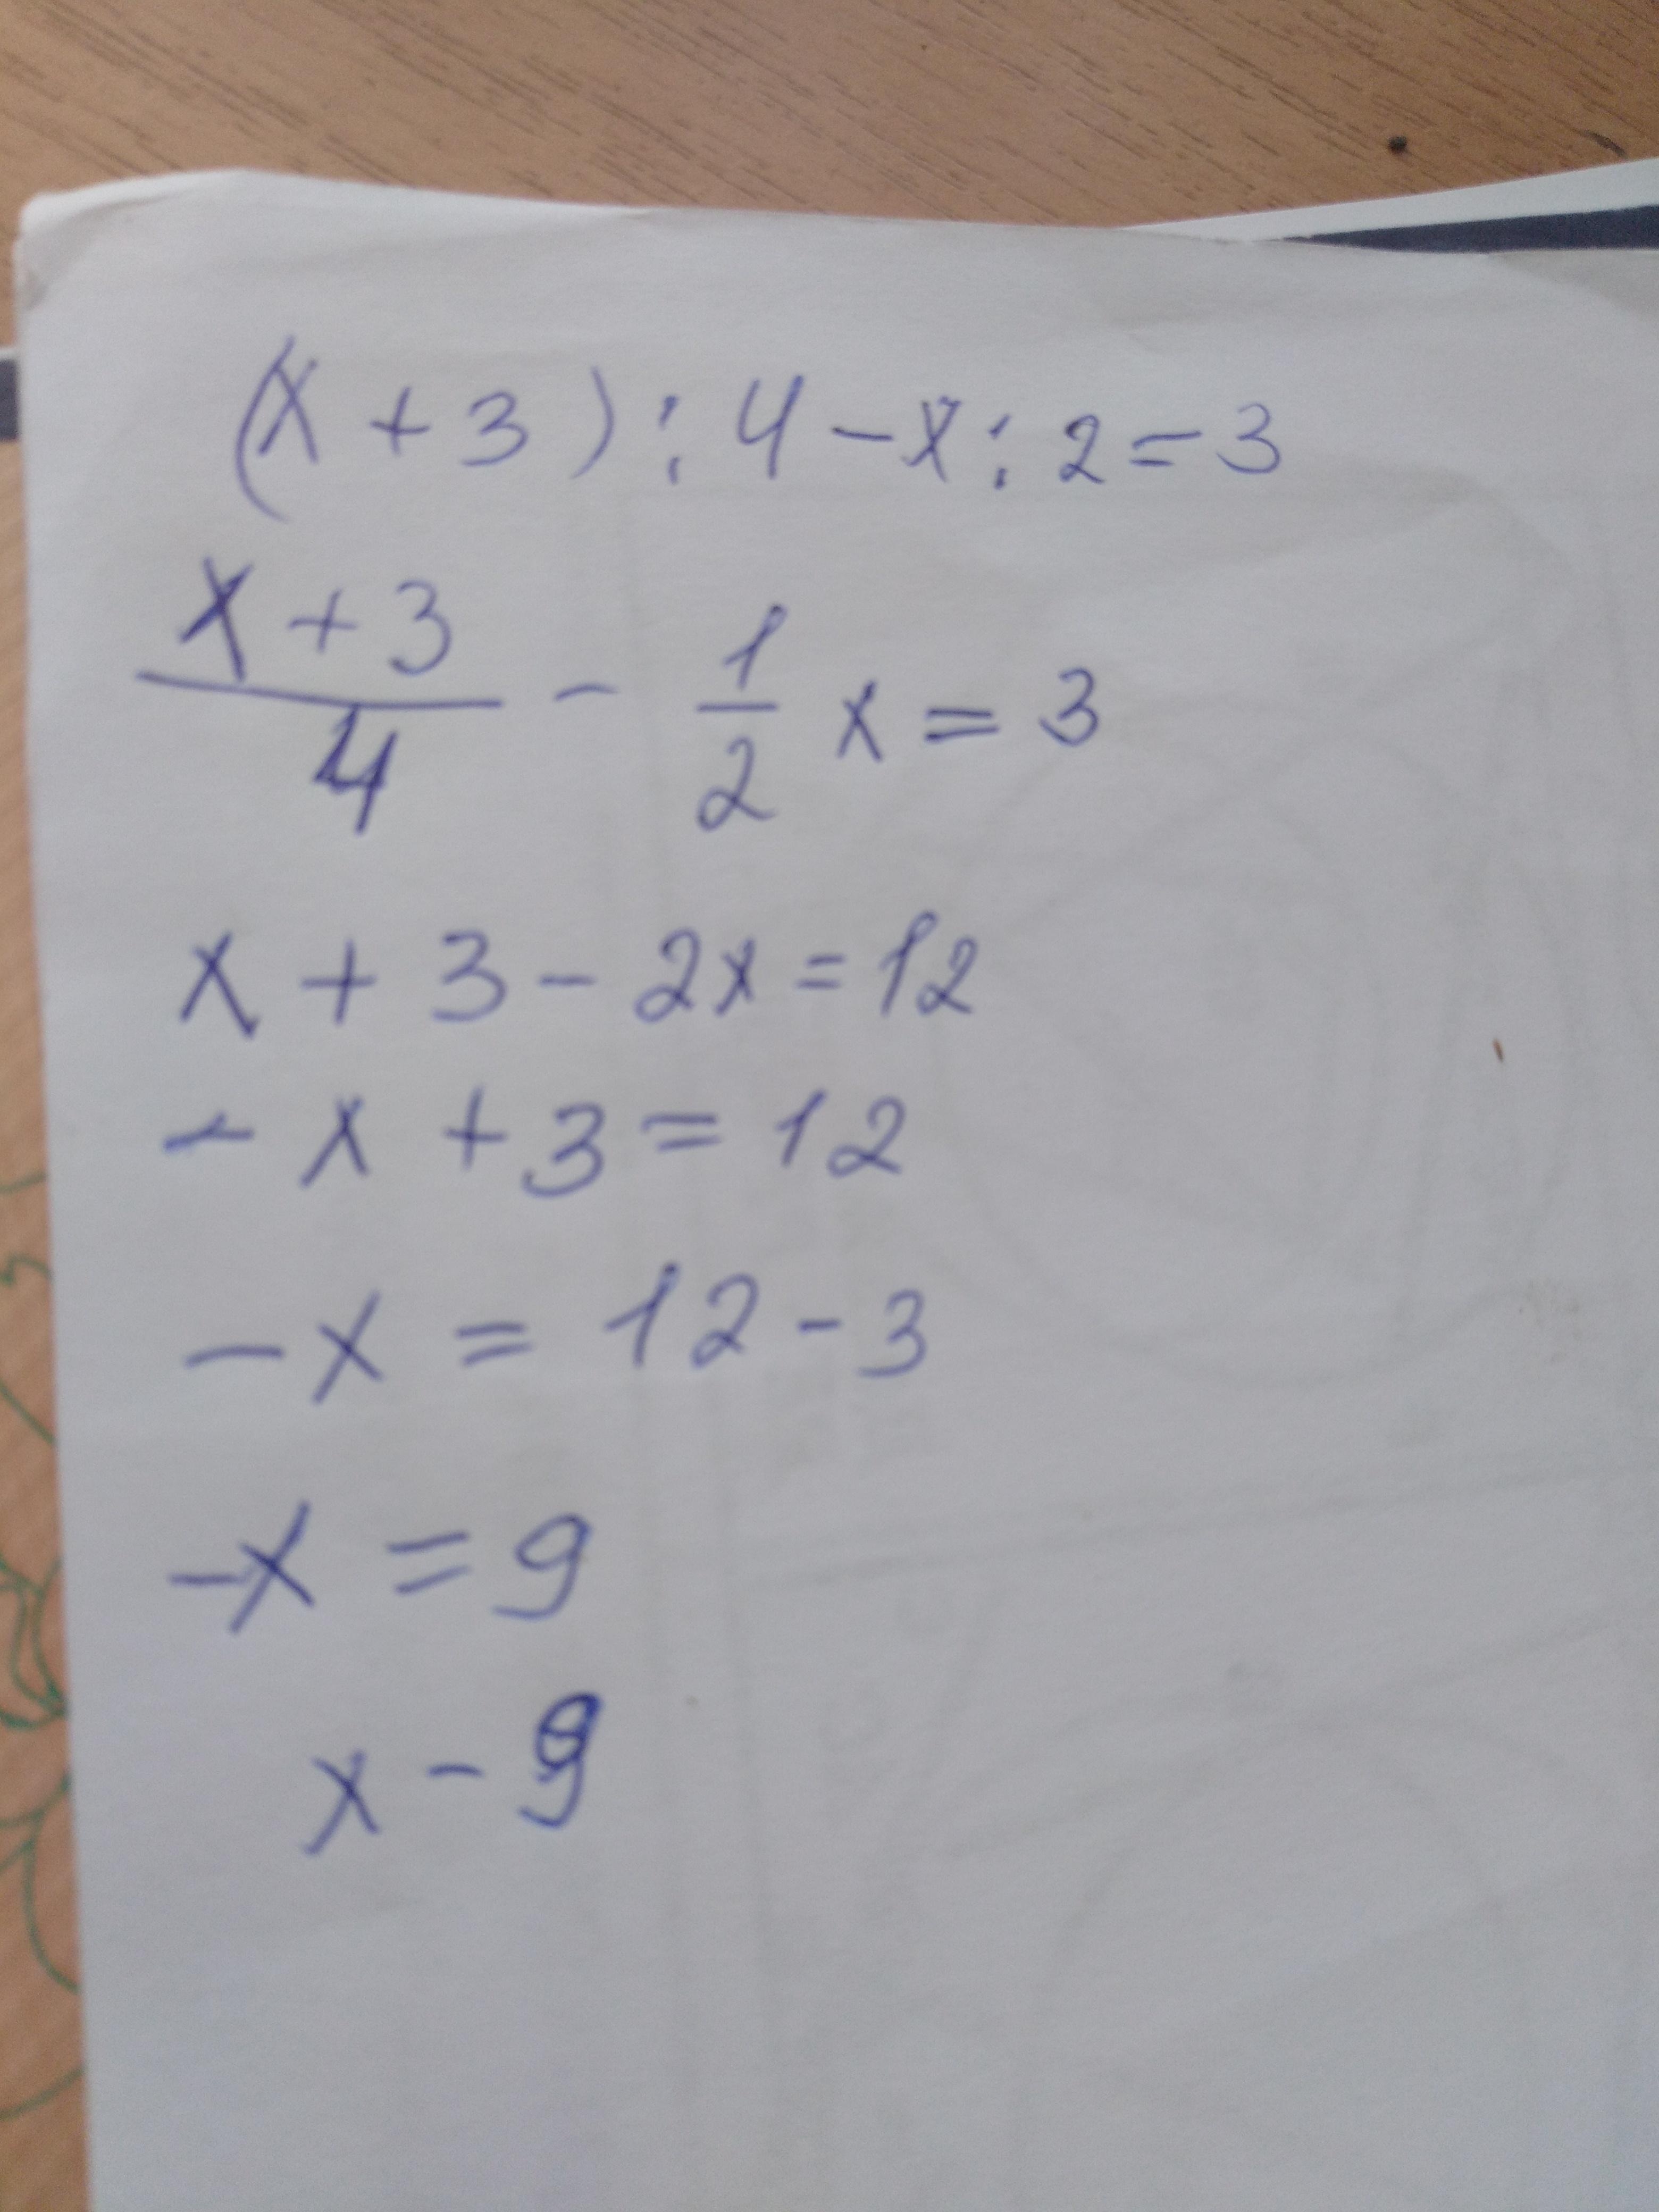 (x + 3) : 4 - x : 2 = 3
x + 3
4
- 1/2 x = 3
x + 3 - 2x = 12
- x + 3 = 12
- x = 12 - 3
- x = 9
x - 9